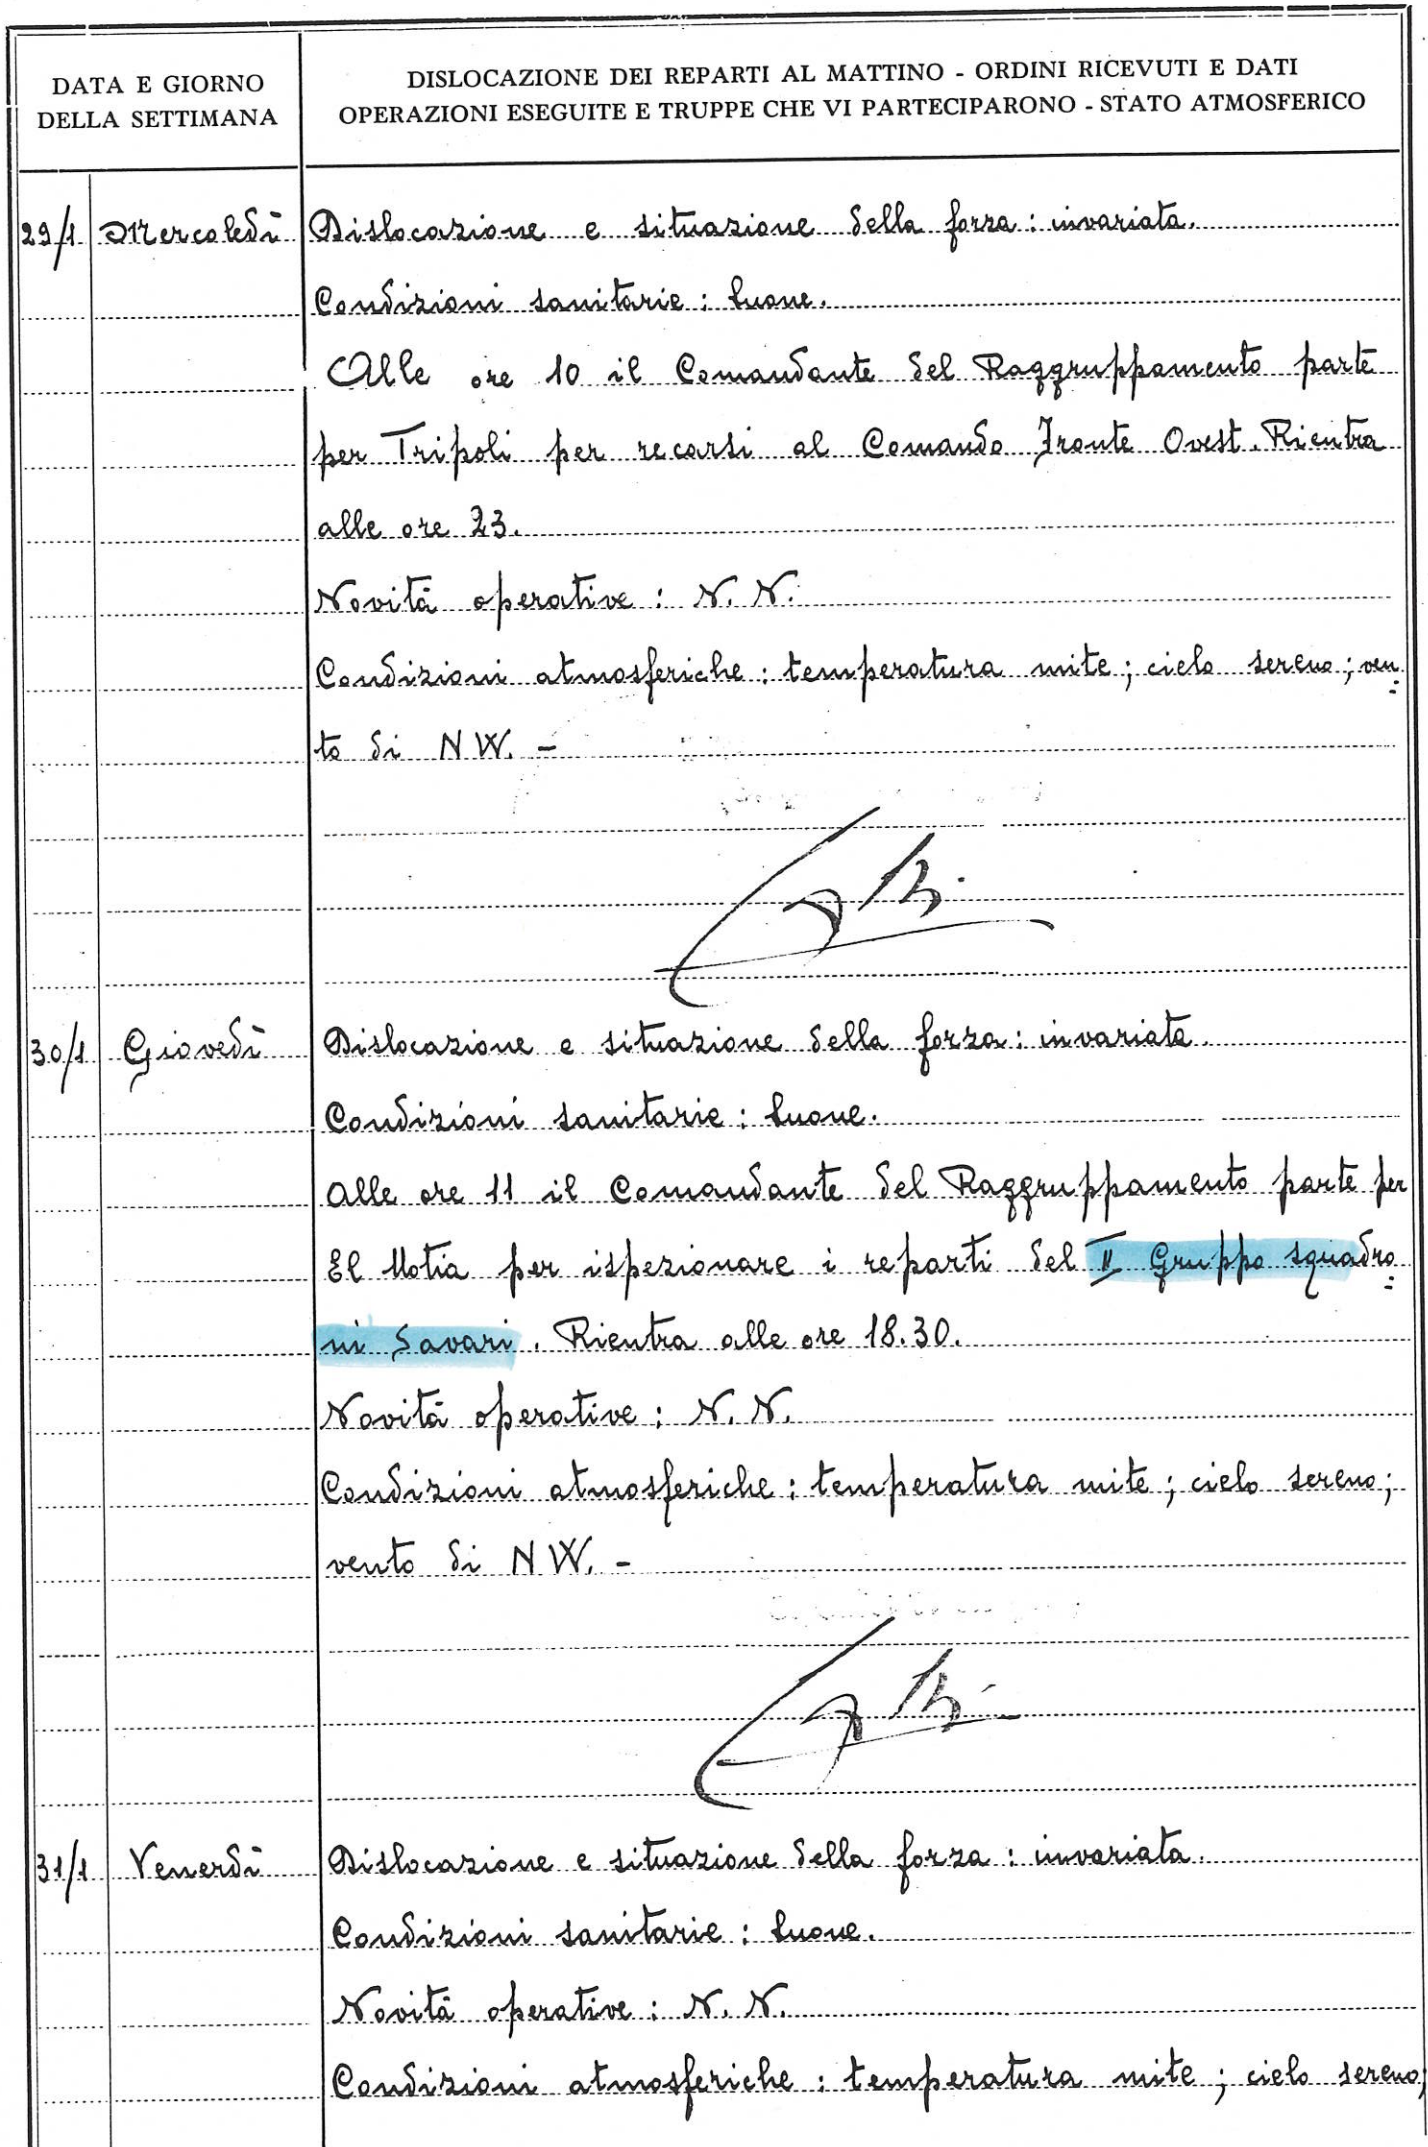 DATA E GIORNO
DELLA SETTIMANA
DISLOCAZIONE DEI REPARTI AL MATTINO - ORDINI RICEVUTI E DATI
OPERAZIONI ESEGUITE E TRUPPE CHE VI PARTECIPARONO - STATO ATMOSFERICO
29/1 Mercoledì Dislocazione e situazione della forza : invariata.
Condizioni sanitarie : buone.
Alle ore 10 il Comandante del Raggruppamento parte
per Tripoli per recarsi al Comando Fronte Ovest. Rientra
alle ore 23.
Novità operative : N. N.
Condizioni atmosferiche : temperatura mite ; cielo sereno ; ven=
to di NW. -
30/1 Giovedì Dislocazione e situazione della forza : invariata.
Condizioni sanitarie : buone.
Alle ore 11 il Comandante del Raggruppamento parte per
El Uotia per ispezionare i reparti del II Gruppo squadro=
ni Savari. Rientra alle ore 18.30.
Novità operative : N. N.
Condizioni atmosferiche : temperatura mite ; cielo sereno ;
vento di NW. -
31/1 Venerdì Dislocazione e situazione della forza : invariata.
Condizioni sanitarie : buone.
Novità operative : N. N.
Condizioni atmosferiche : temperatura mite ; cielo sereno;